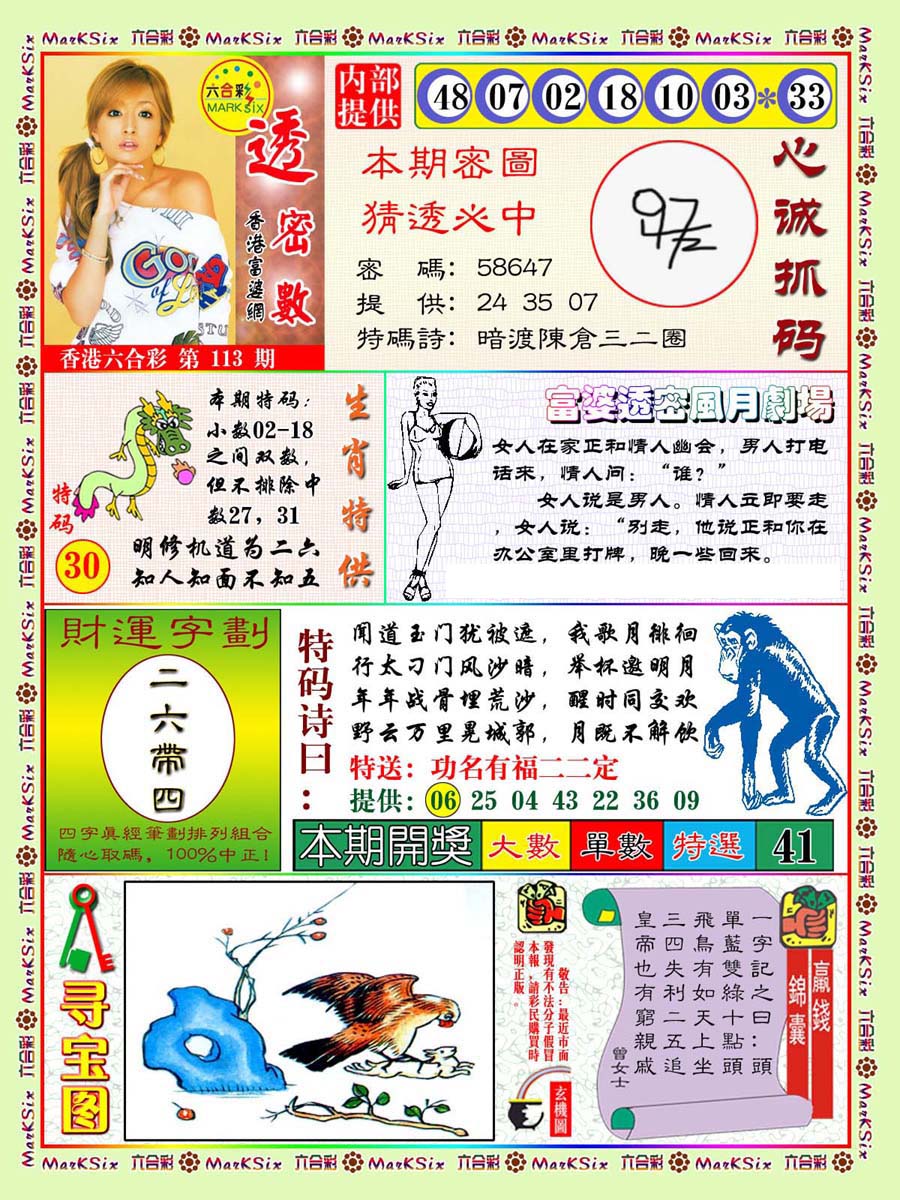 MarKSix 六合彩 MarKSix 六合彩 MarKSix 六合彩 MarKSix 六合彩 MarKSix 六合彩
六合彩
MARK six
透密數
香港富婆網
香港六合彩 第 113 期
内部
提供
48 07 02 18 10 03 * 33
本期密圖
猜透必中
密 碼: 58647
提 供: 24 35 07
特碼詩: 暗渡陳倉三二圈
心诚抓码
本期特码:
小数02-18
之间双数,
但不排除中
数27, 31
明修机道为二六
知人知面不知五
特码
30
生肖特供
富婆透密風月劇場
女人在家正和情人幽会, 男人打电
话来, 情人问: “谁? ”
女人说是男人。情人立即要走
, 女人说: “别走, 他说正和你在
办公室里打牌, 晚一些回来。
財運字劃
二六帶四
四字真經筆劃排列組合
隨心取碼, 100%中正!
特码诗曰:
闻道玉门犹被遮, 我歌月徘徊
行太刁门风沙暗, 举杯邀明月
年年战骨埋荒沙, 醒时同交欢
野云万里晃城郭, 月既不解饮
特送: 功名有福二二定
提供: 06 25 04 43 22 36 09
本期開獎 大數 單數 特選 41
寻宝图
敬告:最近市面
發現有不法分子假冒
本報,請彩民購買時
認明正版。
玄機圖
贏錢
錦囊
一字記之曰:頭
單藍雙綠十點頭
飛鳥有如天上坐
三四失利二五追
皇帝也有窮親戚
曾女士
MarKSix 六合彩 MarKSix 六合彩 MarKSix 六合彩 MarKSix 六合彩 MarKSix 六合彩